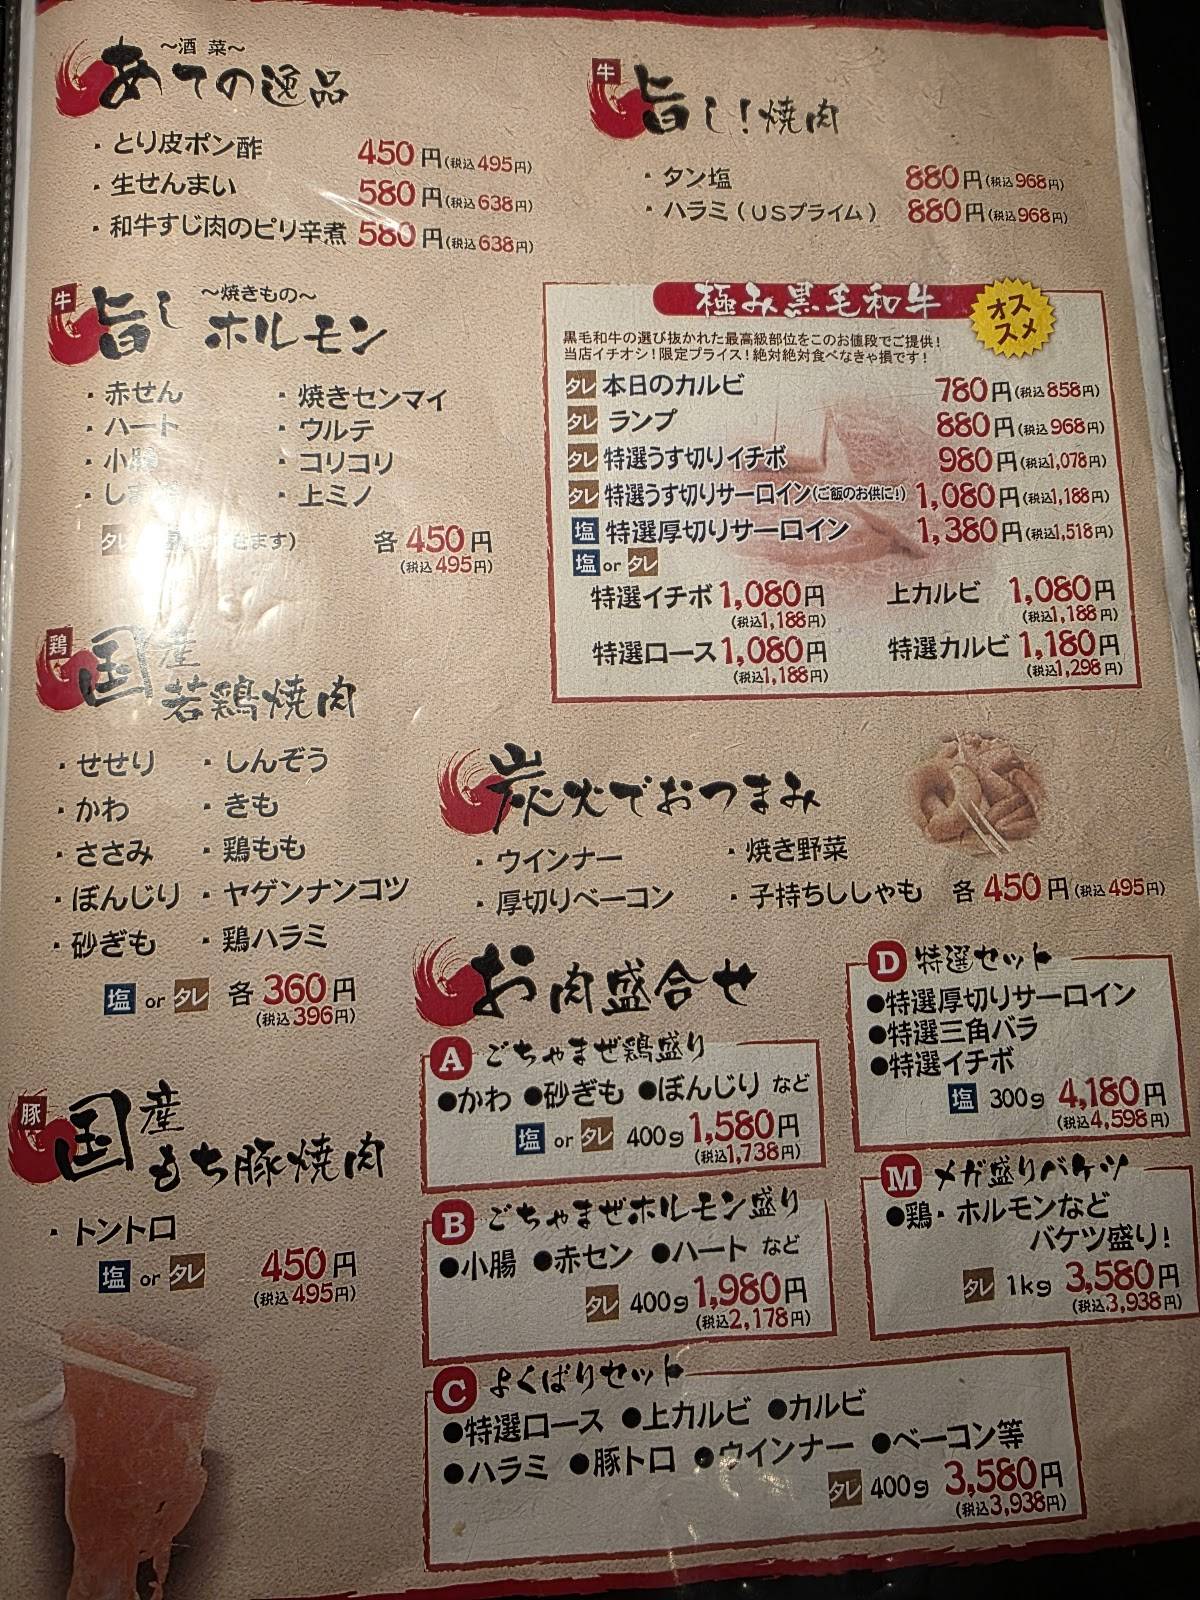 ～酒菜～
あての逸品
・とり皮ポン酢 450円(税込495円)
・生せんまい 580円(税込638円)
・和牛すじ肉のピリ辛煮 580円(税込638円)
牛 旨し ～焼きもの～
ホルモン
・赤せん ・焼きセンマイ
・ハート ・ウルテ
・小腸 ・コリコリ
・し ・上ミノ
タレ きます) 各450円
(税込495円)
鶏 国産
若鶏焼肉
・せせり ・しんぞう
・かわ ・きも
・ささみ ・鶏もも
・ぼんじり ・ヤゲンナンコツ
・砂ぎも ・鶏ハラミ
塩 or タレ 各360円
(税込396円)
豚 国産
もち豚焼肉
・トントロ
塩 or タレ 450円
(税込495円)
牛 旨し!焼肉
・タン塩 880円(税込968円)
・ハラミ(USプライム) 880円(税込968円)
極み黒毛和牛
オススメ
黒毛和牛の選び抜かれた最高級部位をこのお値段でご提供!
当店イチオシ!限定プライス!絶対絶対食べなきゃ損です!
タレ 本日のカルビ 780円(税込858円)
タレ ランプ 880円(税込968円)
タレ 特選うす切りイチボ 980円(税込1,078円)
タレ 特選うす切りサーロイン(ご飯のお供に!) 1,080円(税込1,188円)
塩 特選厚切りサーロイン 1,380円(税込1,518円)
塩 or タレ
特選イチボ 1,080円 上カルビ 1,080円
(税込1,188円) (税込1,188円)
特選ロース 1,080円 特選カルビ 1,180円
(税込1,188円) (税込1,298円)
炭火でおつまみ
・ウインナー ・焼き野菜
・厚切りベーコン ・子持ちししゃも 各450円(税込495円)
お肉盛合せ
A ごちゃまぜ鶏盛り
●かわ ●砂ぎも ●ぼんじり など
塩 or タレ 400g 1,580円
(税込1,738円)
B ごちゃまぜホルモン盛り
●小腸 ●赤セン ●ハート など
タレ 400g 1,980円
(税込2,178円)
C よくばりセット
●特選ロース ●上カルビ ●カルビ
●ハラミ ●豚トロ ●ウインナー ●ベーコン等
タレ 400g 3,580円
(税込3,938円)
D 特選セット
●特選厚切りサーロイン
●特選三角バラ
●特選イチボ
塩 300g 4,180円
(税込4,598円)
M メガ盛りバケツ
●鶏・ホルモンなど
バケツ盛り!
タレ 1kg 3,580円
(税込3,938円)